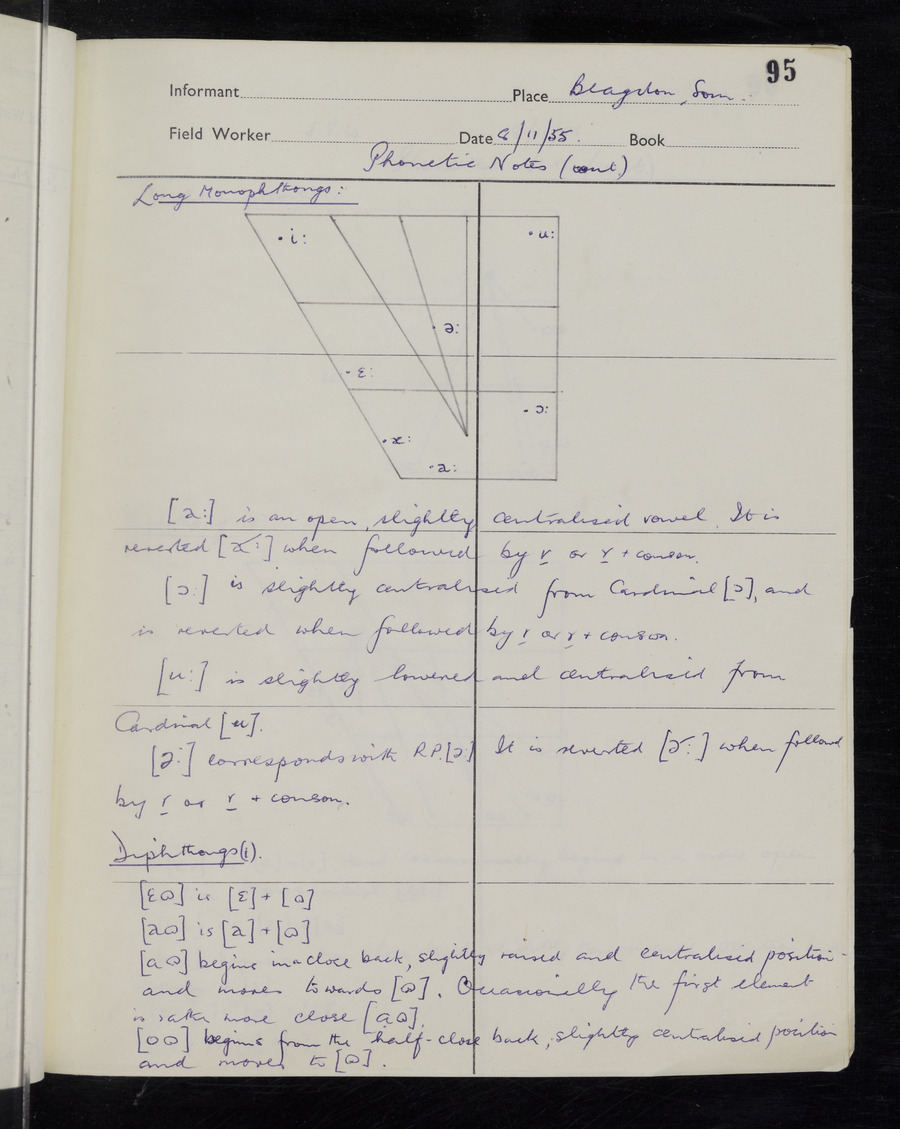 95
Informant
Place Blagdon, Som.
Field Worker
Date 8/11/55. Book
Phonetic Notes (cont)
Long Monophthongs:
i:
u:
ə:
ɛ:
ɔ:
æ:
a:
[a:] is an open, slightly centralised vowel. It is
reverted [a˞:] when followed by r or r + conson.
[ɔ:] is slightly centralised from Cardinal [ɔ], and
is reverted when followed by r or r + conson.
[u:] is slightly lowered and centralised from
Cardinal [u].
[ə:] corresponds with R.P. [ə:] It is reverted [ə˞:] when followed
by r or r + conson.
Diphthongs (i).
[ɛɷ] is [ɛ] + [ɷ]
[aɷ] is [a] + [ɷ]
[ɑɷ] begins in a close back, slightly raised and centralised position
and moves towards [ɷ]. Occasionally the first element
is rather more close [ɑɷ].
[oɷ] begins from the half-close back, slightly centralised position
and moves to [ɷ].